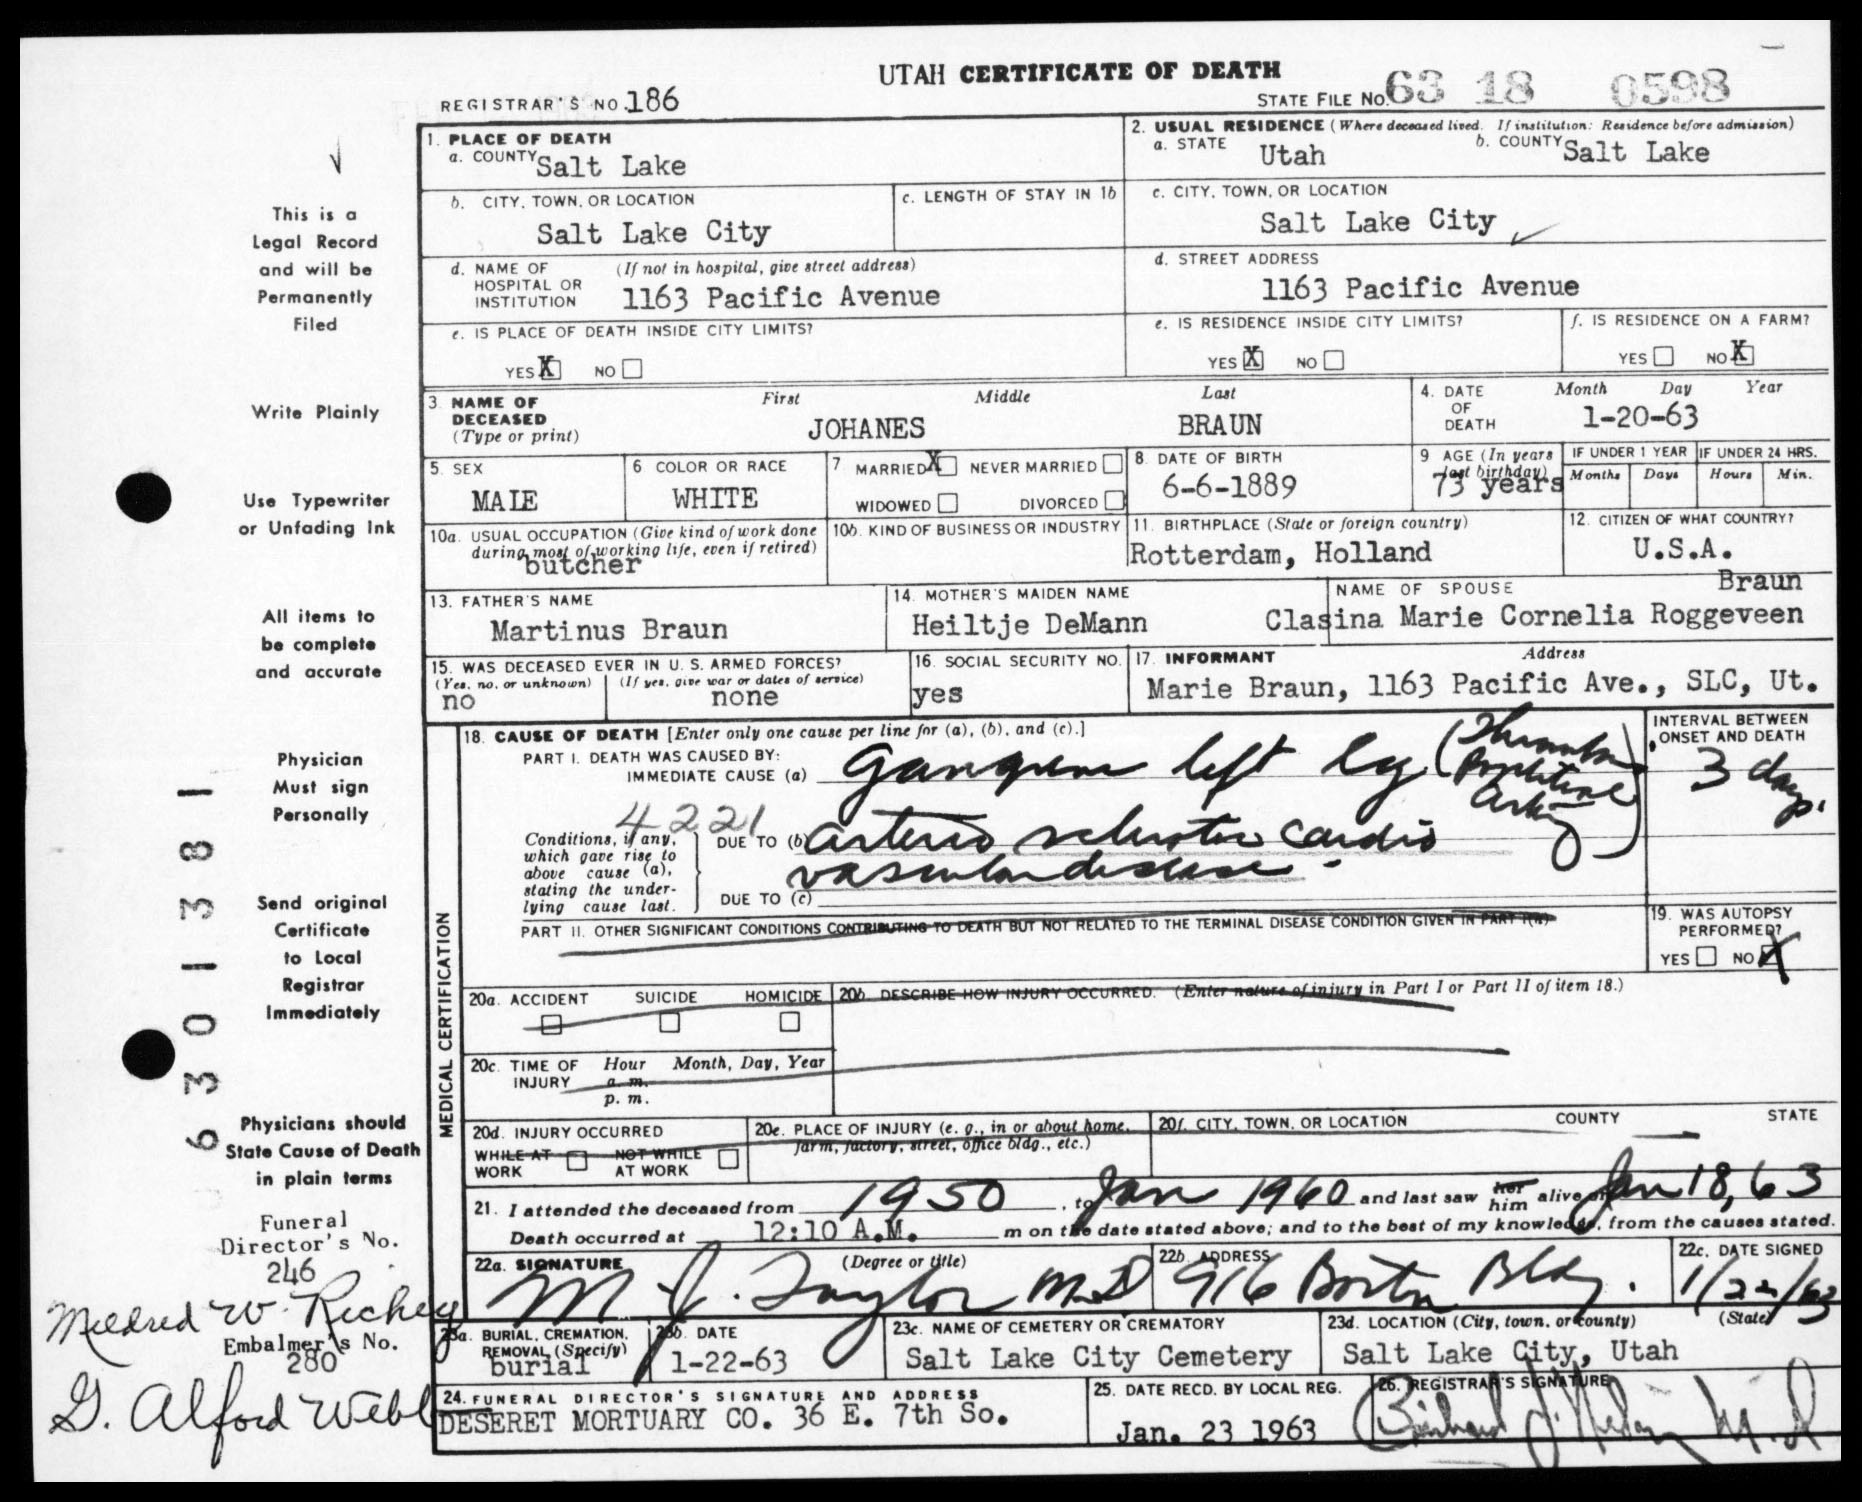 UTAH CERTIFICATE OF DEATH
REGISTRAR'S NO. 186
STATE FILE NO. 63 18 0598
1. PLACE OF DEATH
a. COUNTY Salt Lake
2. USUAL RESIDENCE (Where deceased lived. If institution: Residence before admission)
a. STATE Utah b. COUNTY Salt Lake
b. CITY, TOWN, OR LOCATION
Salt Lake City
c. LENGTH OF STAY IN 1b
c. CITY, TOWN, OR LOCATION
Salt Lake City
d. NAME OF HOSPITAL OR INSTITUTION (If not in hospital, give street address)
1163 Pacific Avenue
d. STREET ADDRESS
1163 Pacific Avenue
e. IS PLACE OF DEATH INSIDE CITY LIMITS?
YES X NO
e. IS RESIDENCE INSIDE CITY LIMITS?
YES X NO
f. IS RESIDENCE ON A FARM?
YES NO X
3. NAME OF DECEASED (Type or print)
First Middle Last
JOHANES BRAUN
4. DATE OF DEATH Month Day Year
1-20-63
5. SEX
MALE
6 COLOR OR RACE
WHITE
7 MARRIED X NEVER MARRIED
WIDOWED DIVORCED
8. DATE OF BIRTH
6-6-1889
9 AGE (In years last birthday)
73 years
IF UNDER 1 YEAR IF UNDER 24 HRS.
Months Days Hours Min.
10a. USUAL OCCUPATION (Give kind of work done during most of working life, even if retired)
butcher
10b. KIND OF BUSINESS OR INDUSTRY
11. BIRTHPLACE (State or foreign country)
Rotterdam, Holland
12. CITIZEN OF WHAT COUNTRY?
U.S.A.
13. FATHER'S NAME
Martinus Braun
14. MOTHER'S MAIDEN NAME
Heiltje DeMann
NAME OF SPOUSE Braun
Clasina Marie Cornelia Roggeveen
15. WAS DECEASED EVER IN U. S. ARMED FORCES?
(Yes, no, or unknown) (If yes, give war or dates of service)
no none
16. SOCIAL SECURITY NO.
yes
17. INFORMANT Address
Marie Braun, 1163 Pacific Ave., SLC, Ut.
MEDICAL CERTIFICATION
18. CAUSE OF DEATH [Enter only one cause per line for (a), (b), and (c).]
PART I. DEATH WAS CAUSED BY:
IMMEDIATE CAUSE (a) left leg
INTERVAL BETWEEN ONSET AND DEATH
3 days.
4221
Conditions, if any, which gave rise to above cause (a), stating the underlying cause last.
DUE TO (b) arterio sclerotic cardio
vascular disease
DUE TO (c)
PART II. OTHER SIGNIFICANT CONDITIONS CONTRIBUTING TO DEATH BUT NOT RELATED TO THE TERMINAL DISEASE CONDITION GIVEN IN PART I(a)
19. WAS AUTOPSY PERFORMED?
YES NO X
20a. ACCIDENT SUICIDE HOMICIDE
20b. DESCRIBE HOW INJURY OCCURRED. (Enter nature of injury in Part I or Part II of item 18.)
20c. TIME OF INJURY Hour Month, Day, Year
a. m.
p. m.
20d. INJURY OCCURRED
WHILE AT WORK NOT WHILE AT WORK
20e. PLACE OF INJURY (e. g., in or about home, farm, factory, street, office bldg., etc.)
20f. CITY, TOWN, OR LOCATION COUNTY STATE
21. I attended the deceased from 1950, to Jan 1960 and last saw her him alive on Jan 18, 63
Death occurred at 12:10 A.M. m on the date stated above; and to the best of my knowledge, from the causes stated.
22a. SIGNATURE (Degree or title)
M. J. Taylor M.D
22b. ADDRESS
916 Boston Bldg.
22c. DATE SIGNED
1/22/63
23a. BURIAL, CREMATION, REMOVAL (Specify)
burial
23b. DATE
1-22-63
23c. NAME OF CEMETERY OR CREMATORY
Salt Lake City Cemetery
23d. LOCATION (City, town, or county) (State)
Salt Lake City, Utah
24. FUNERAL DIRECTOR'S SIGNATURE AND ADDRESS
DESERET MORTUARY CO. 36 E. 7th So.
25. DATE RECD. BY LOCAL REG.
Jan. 23 1963
26. REGISTRAR'S SIGNATURE
This is a
Legal Record
and will be
Permanently
Filed
Write Plainly
Use Typewriter
or Unfading Ink
All items to
be complete
and accurate
Physician
Must sign
Personally
Send original
Certificate
to Local
Registrar
Immediately
Physicians should
State Cause of Death
in plain terms
Funeral
Director's No.
246
Mildred W. Richey
Embalmer's No.
280
G. Alford Webb
6301381